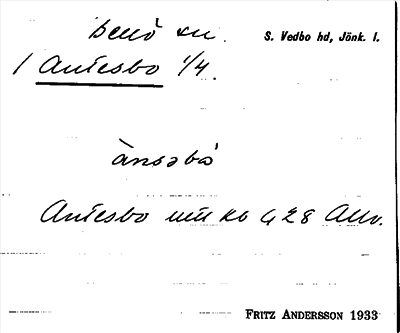 Bellö sn.
S. Vedbo hd, Jönk. l.
1 Antesbo 1/4.
ànsəbò
Antesbo
Allv.
FRITZ ANDERSSON 1933